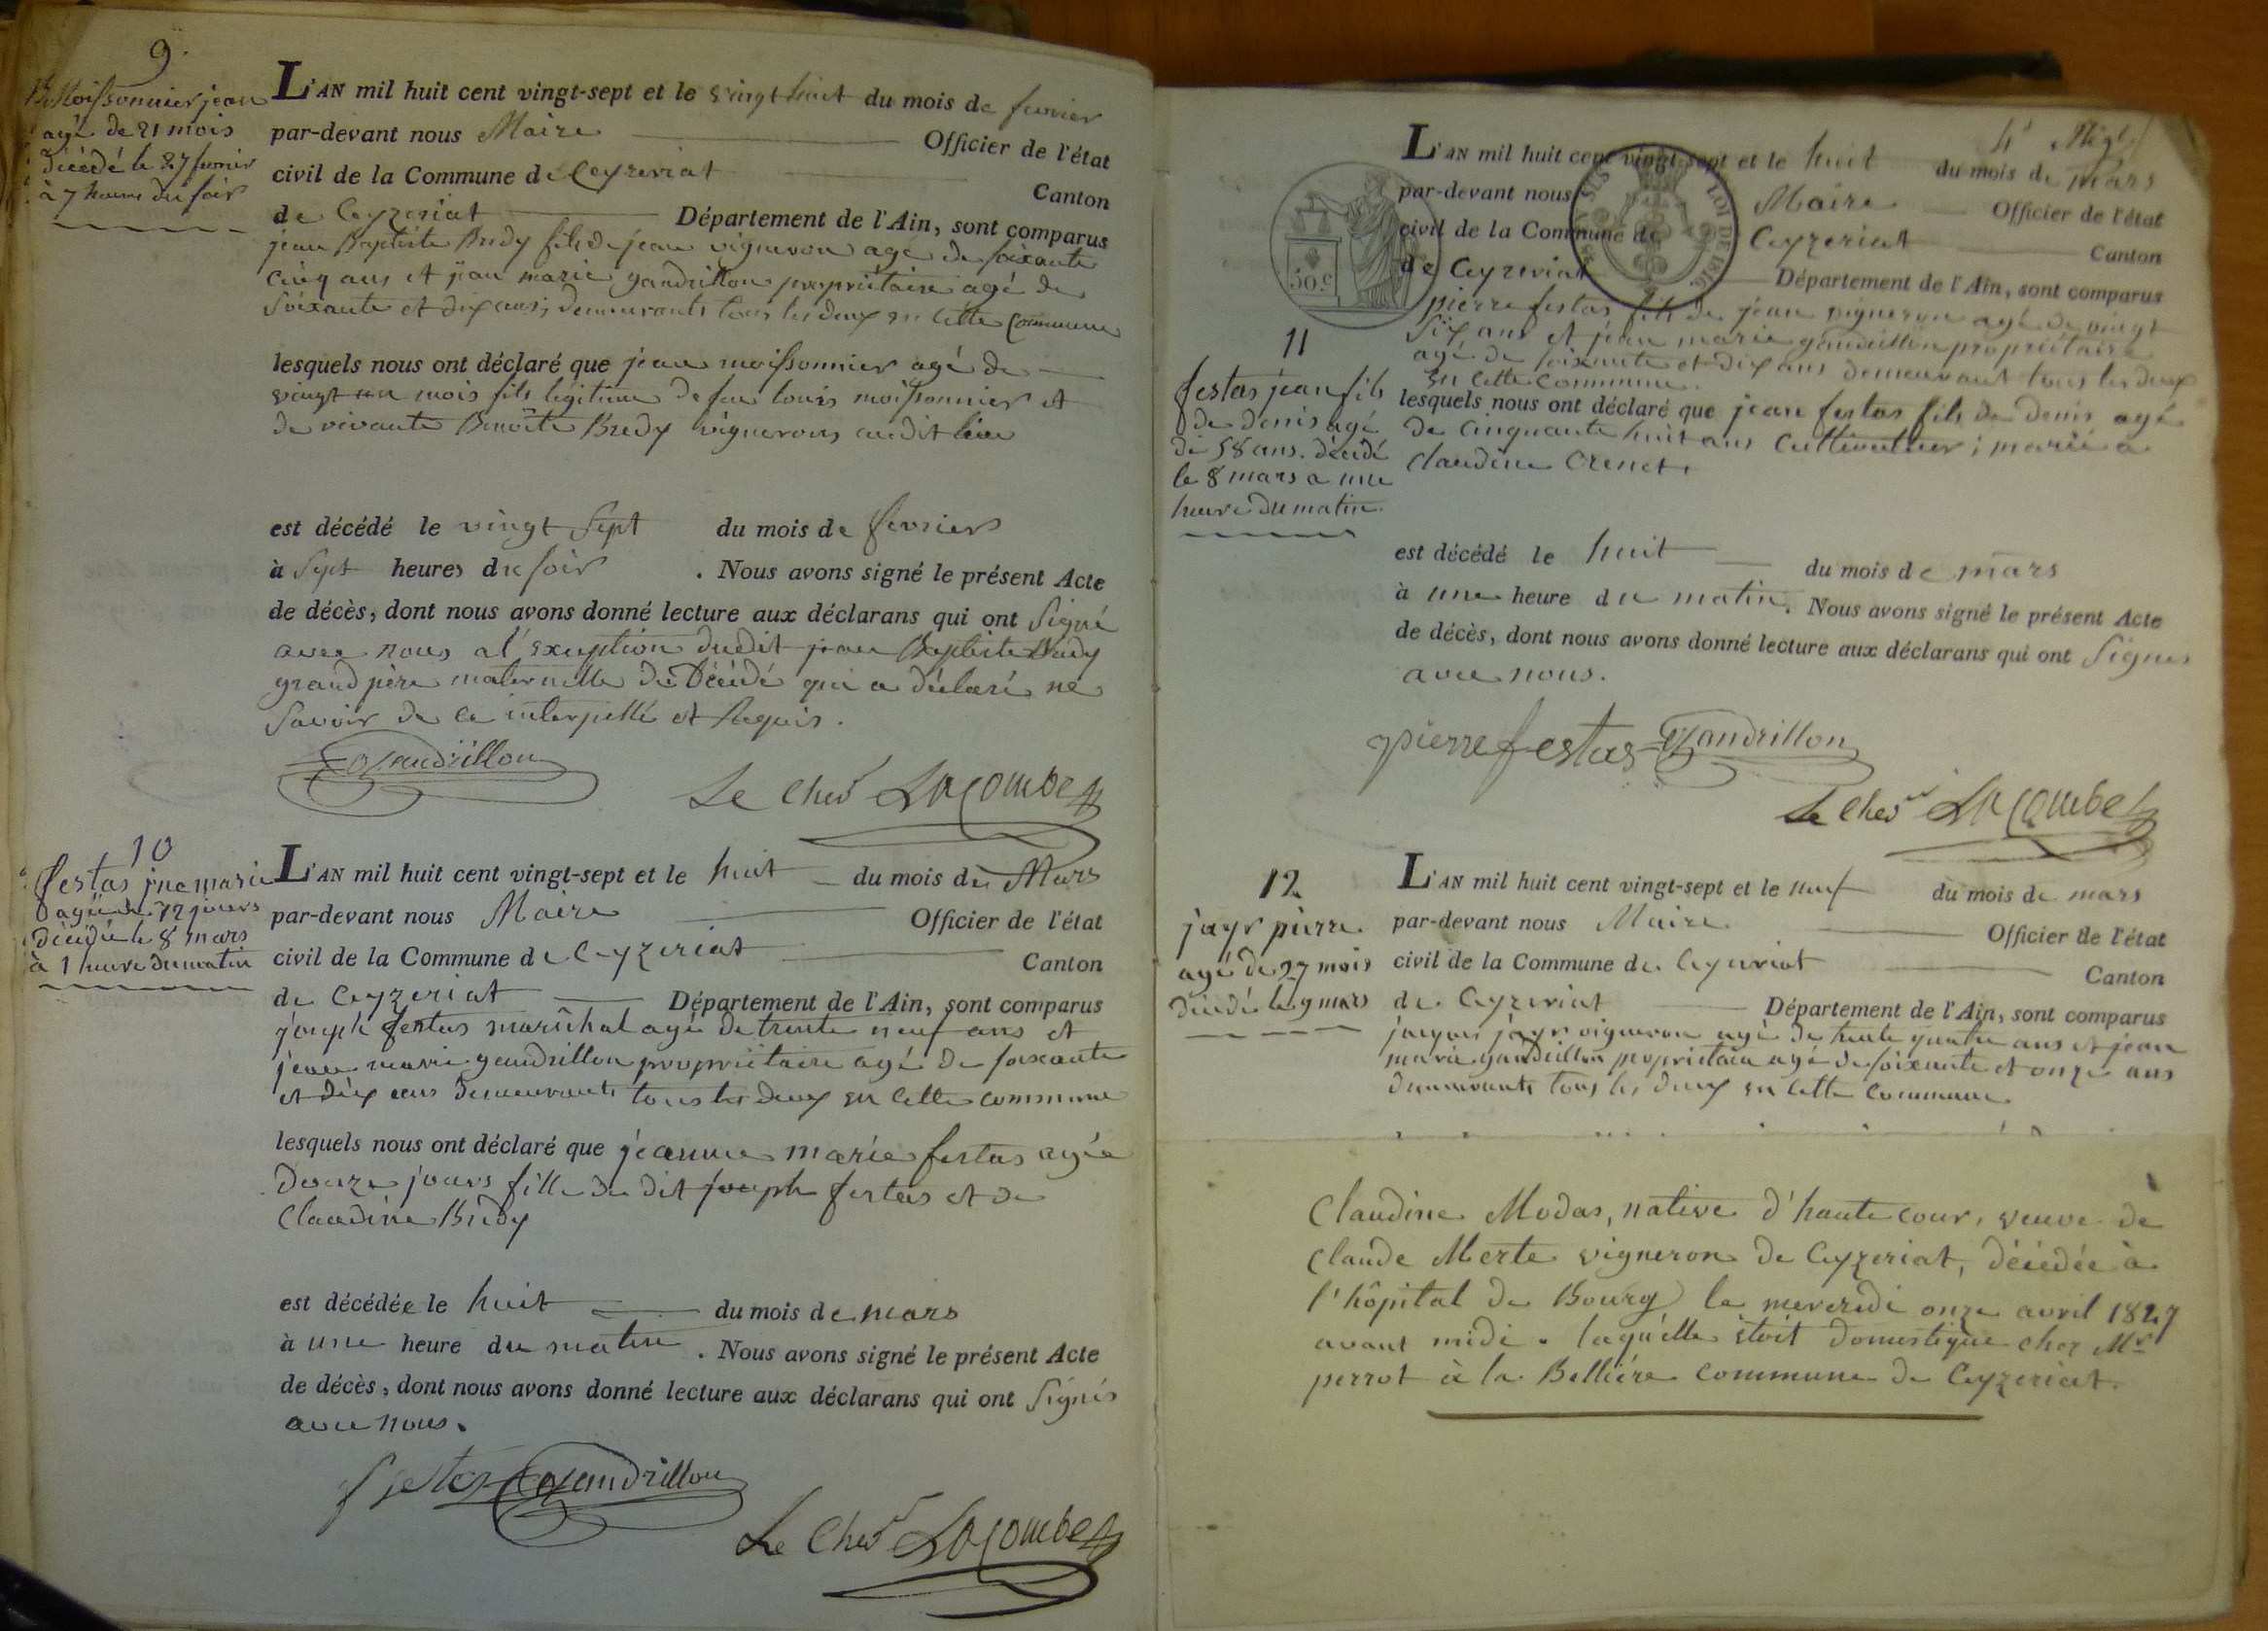 9.
Moissonnier jean
agé de 21 mois
décédé le 27 fevrier
à 7 heures du soir
L'AN mil huit cent vingt-sept et le vingt huit du mois de fevrier
par-devant nous Maire Officier de l'état
civil de la Commune de Ceyzeriat Canton
de Ceyzeriat Département de l'Ain, sont comparus
jean Baptiste Bredy fils de jean vigneron agé de soixante
cinq ans et jean marie gandrillon propriétaire agé de
soixante et dix ans, demeurants tous les deux en cette Commune
lesquels nous ont déclaré que jean moissonnier agé de
vingt un mois fils légitime de feu louis moissonnier et
de vivante Benoite Bredy vignerons audit lieu
est décédé le vingt sept du mois de fevrier
à sept heures du soir . Nous avons signé le présent Acte
de décès, dont nous avons donné lecture aux déclarans qui ont signé
avec nous a l'exception dudit jean Baptiste Bredy
grand père maternelle du Décédé qui a déclaré ne
savoir de ce interpellé et Requis.
Gandrillon
Le Cher LACombe
10
festas jne marie
agée de 12 jours
décédée le 8 mars
à 1 heure du matin
L'AN mil huit cent vingt-sept et le huit du mois de Mars
par-devant nous Maire Officier de l'état
civil de la Commune de Ceyzeriat Canton
de Ceyzeriat Département de l'Ain, sont comparus
joseph festas maréchal agé de trente neuf ans et
jean marie gandrillon propriétaire agé de soixante
et dix ans demeurants tous les deux en cette commune
lesquels nous ont déclaré que jeanne marie festas agée
Douze jours fille du dit joseph festas et de
Claudine Bredy
est décédée le huit du mois de mars
à une heure du matin . Nous avons signé le présent Acte
de décès, dont nous avons donné lecture aux déclarans qui ont signés
avec nous.
festas Gandrillon
Le Cher LACombe
L'AN mil huit cent vingt-sept et le huit du mois de mars
par-devant nous Maire Officier de l'état
civil de la Commune de Ceyzeriat Canton
de Ceyzeriat Département de l'Ain, sont comparus
50.c
LOI DE 1816
pierre festas fils de jean vigneron agé de vingt
six ans et jean marie gandrillon propriétaire
agé de soixante et dix ans demeurant tous les deux
en cette commune.
11
festas jean fils
de denis agé
de 58 ans. décédé
le 8 mars a une
heure du matin.
lesquels nous ont déclaré que jean festas fils de denis agé
de cinquante huit ans Cultivateur; marié a
Claudine Crenet.
est décédé le huit du mois de mars
à une heure du matin. Nous avons signé le présent Acte
de décès, dont nous avons donné lecture aux déclarans qui ont signés
avec nous.
pierre festas Gandrillon
Le Cher LACombe
12
jayr pierre
agé de 27 mois
décédé le 9 mars
L'AN mil huit cent vingt-sept et le neuf du mois de mars
par-devant nous Maire Officier de l'état
civil de la Commune de Ceyzeriat Canton
de Ceyzeriat Département de l'Ain, sont comparus
jacques jayr vigneron agé de trente quatre ans et jean
marie gandrillon propriétaire agé de soixante et onze ans
demeurants tous les deux en cette Commune
Claudine Modas, native d'haute cour, veuve de
Claude Merte vigneron de Ceyzeriat, décédée à
l'hôpital de Bourg le mercredi onze avril 1827
avant midi. laquelle étoit domestique chez Mr
perrot à la Bellière commune de Ceyzeriat.